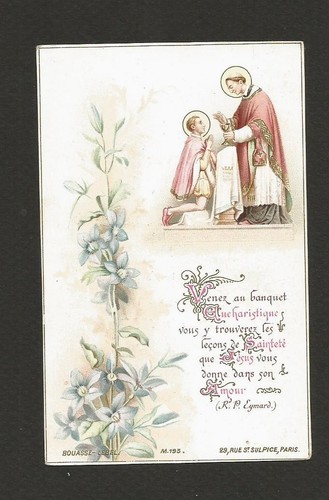 Venez au banquet
Eucharistique;
vous y trouverez les
leçons de Sainteté
que Jésus vous
donne dans son
Amour
(R. P. Eymard.)
BOUASSE-LEBEL. M.193. 29, RUE ST. SULPICE, PARIS.